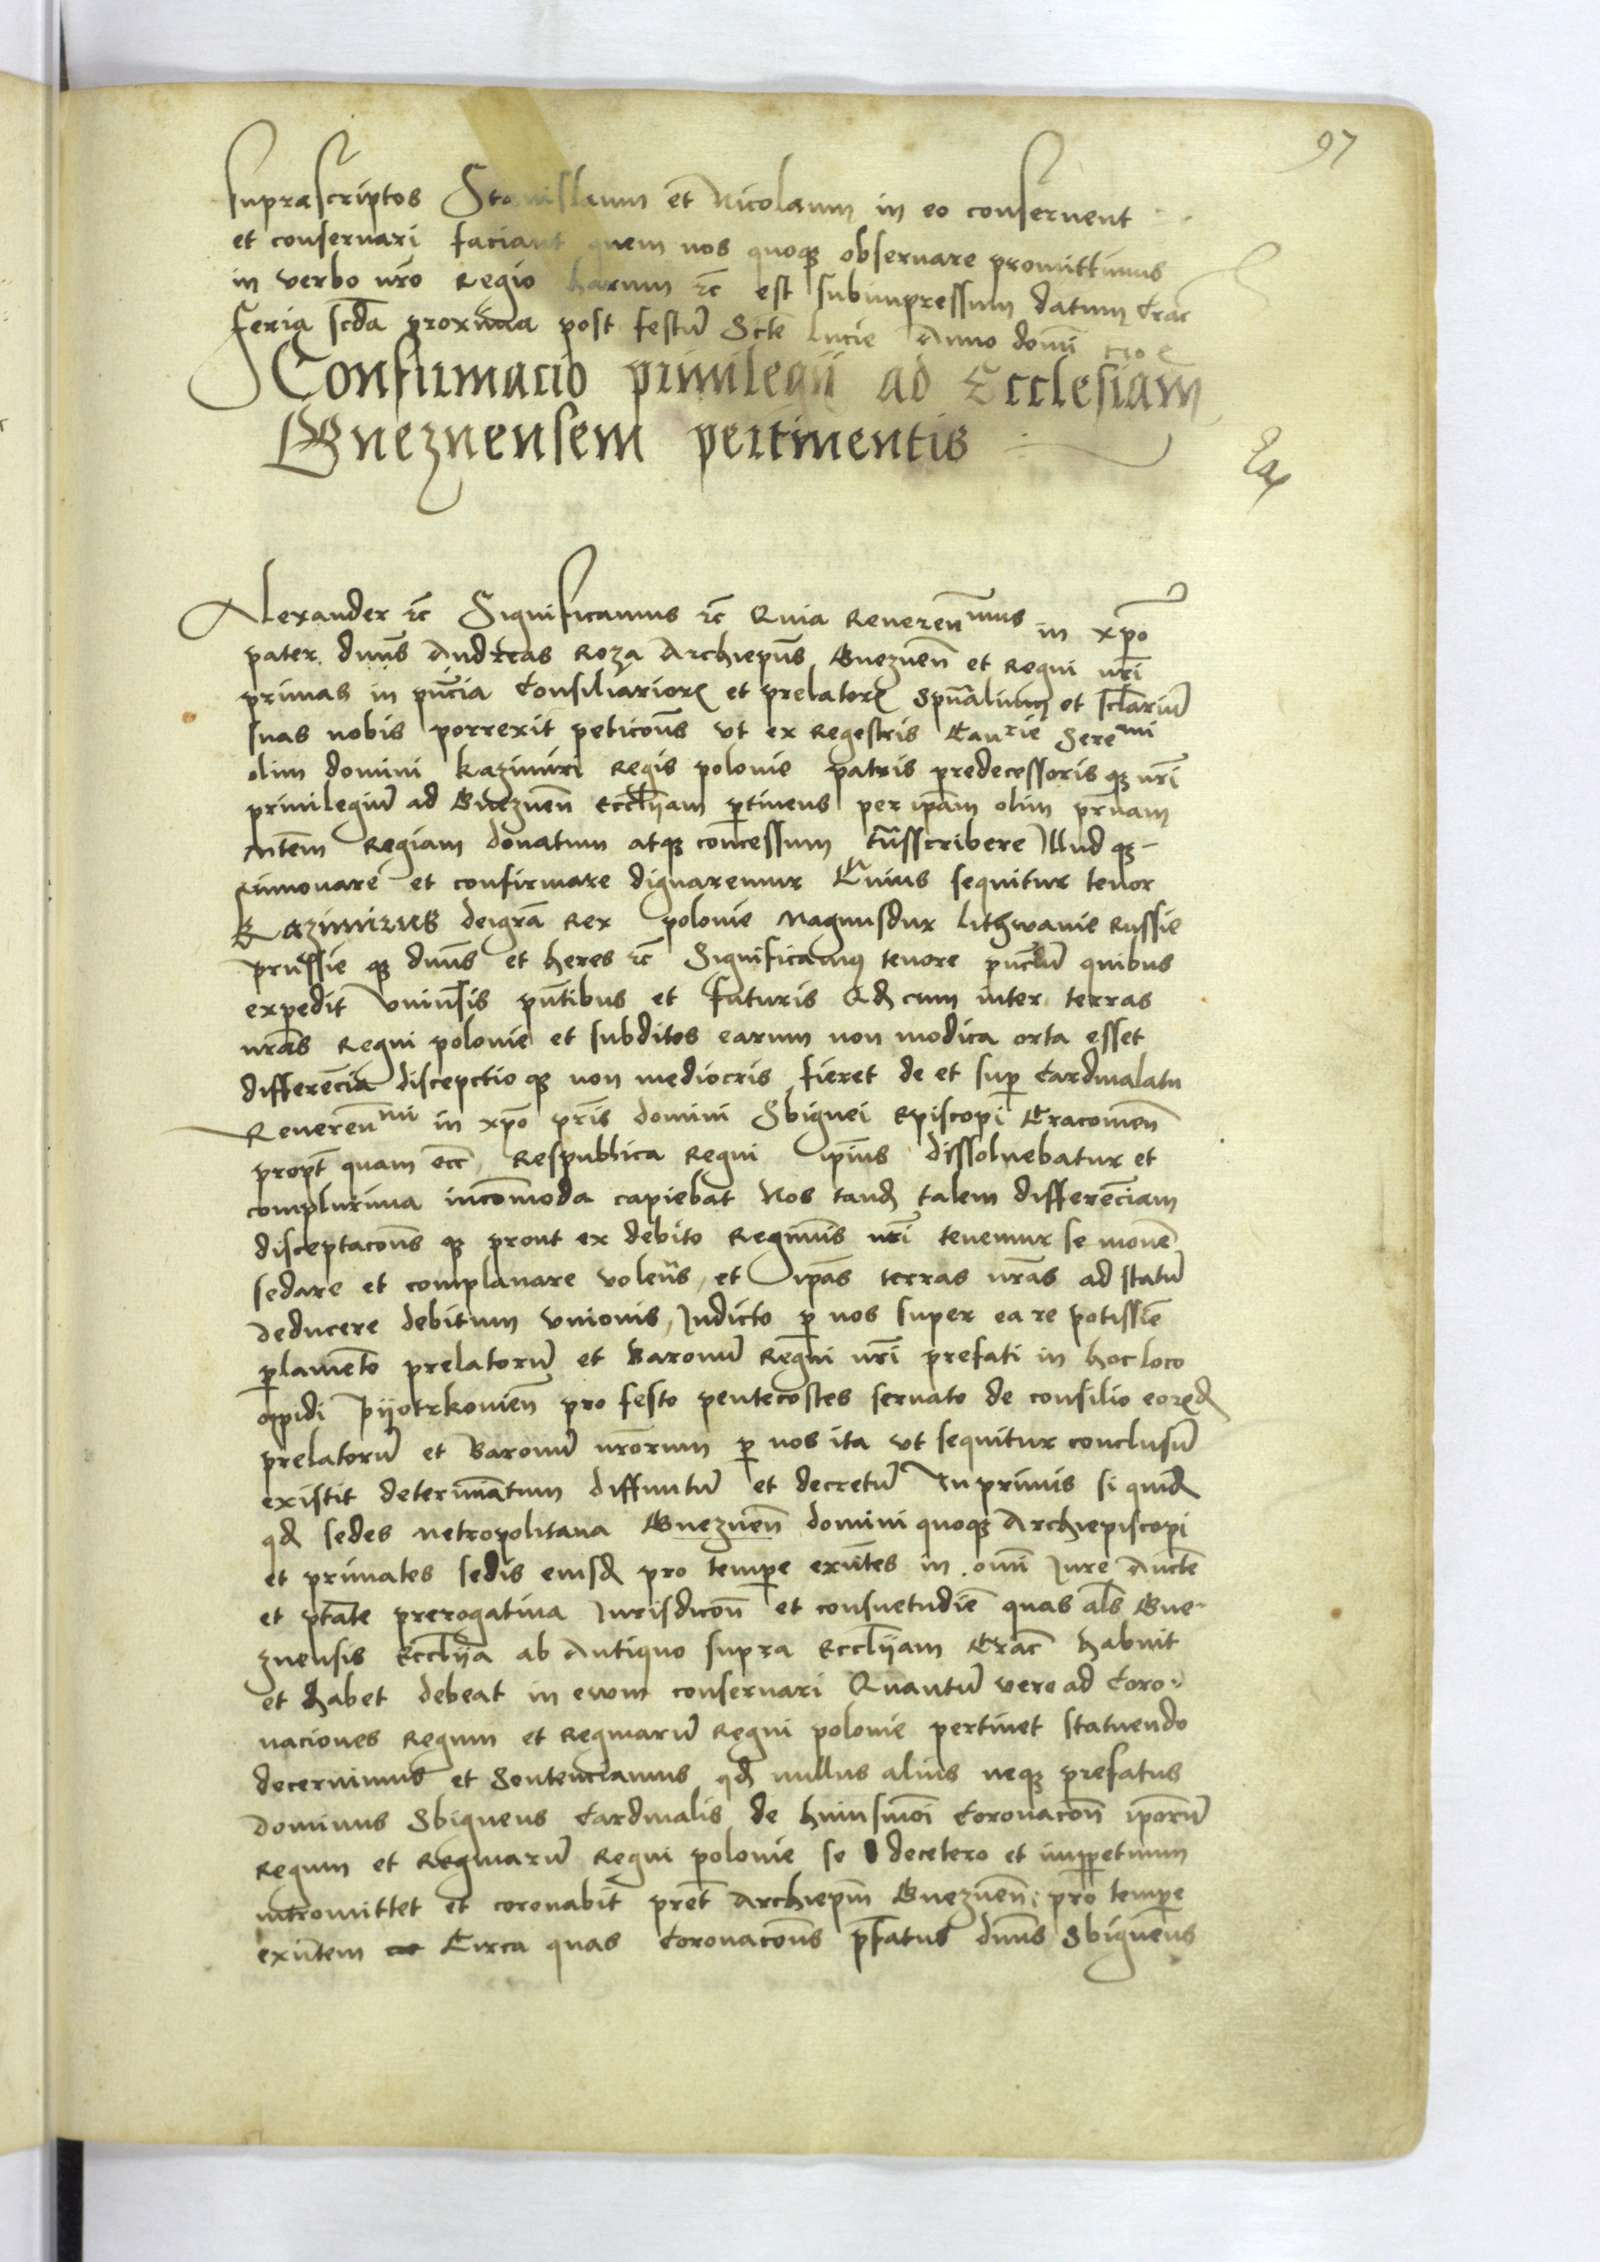 97
suprascriptos Stanislaum et Nicolaum in eo conservent
et conservari faciant quem nos quoq3 observare promittimus
in verbo nr̄o Regio harum etc̄ est subimpressum datum Crac̄
feria scd̄a proxima post festū Scte Lucie Anno domī
Confirmacio privilegii ad Ecclesiam
Gneznensem pertinentis
Alexander etc̄ Significamus etc̄ Quia Reverenmus in xpō
pater dnūs Andreas Roza Archiepūs Gneznen̄ et Regni nrī
primas in pn̄cia Consiliarior et prelator spūalium et sclariū
suas nobis porrexit peticōns ut ex Regestris Canrie Seremi
olim domini Kazimiri Regis polonie patris predecessoris q3 nrī
privilegiū ad Gneznen̄ ecclīiam ptinens per ipām olim prnam
Mtēm Regiam donatum atq3 concessum trāsscribere Illud q3
Innovare et confirmare dignaremur Cuius sequitur tenor
Kazimirus deigrā Rex polonie Magnusdux Lithwanie Russie
prussie q3 dnūs et heres etc̄ Significamus tenore pn̄ciū quibus
expedit univr̄sis pn̄tibus et futuris Qd cum inter terras
nrās Regni polonie et subditos earum non modica orta esset
differēcia discepctio q3 non mediocris fieret de et sup Cardinalatu
Reverenmi in xpō pr̄is domini Sbignei Episcopi Cracovien̄
propt̄ quam ecc̄ Respublica Regni ipīus dissolvebatur et
complurima incōmoda capiebat Nos tand talem differēciam
disceptacōns q3 prout ex debito Regīmis nrī tenemur se monē
sedare et complanare volen̄s et ipās terras nrās ad statū
deducere debitum unionis, Indicto p nos super ea re potissīe
plamēto prelatorū et Baronū Regni nrī prefati in hoc loco
opidi Pyotrkovien̄ pro festo pentecostes servato de consilio eorēd
prelatorū et Baronū nrōrum p nos ita ut sequitur conclusū
existit determinātum diffinitū et decretū In primis si quid
qd sedes metropolitana Gneznen̄ domini quoq3 Archiepiscopi
et primates sedis eiusd pro tempe exn̄tes in omī Iure Aucte
et ptāte prerogativa Iurisdicōn et consuetudīe quas als Gne
znensis Ecclīia ab Antiquo supra Ecclīiam Crac̄ habuit
et habet debeat in evum conservari Quantū vero ad Coro
naciones Regum et Reginarū Regni polonie pertinet statuendo
decernimus et Sentenciamus qd nullus alius neq3 prefatus
Dominus Sbigneus Cardinalis de huiusmōi Coronacōn ipōrū
Regum et Reginarū Regni polonie se decetero et imppetuum
intromittet et coronabit pret̄ Archiepm̄ Gneznen̄ pro tempe
exn̄tem Circa quas Coronacōns pfatus dnūs Sbigneus